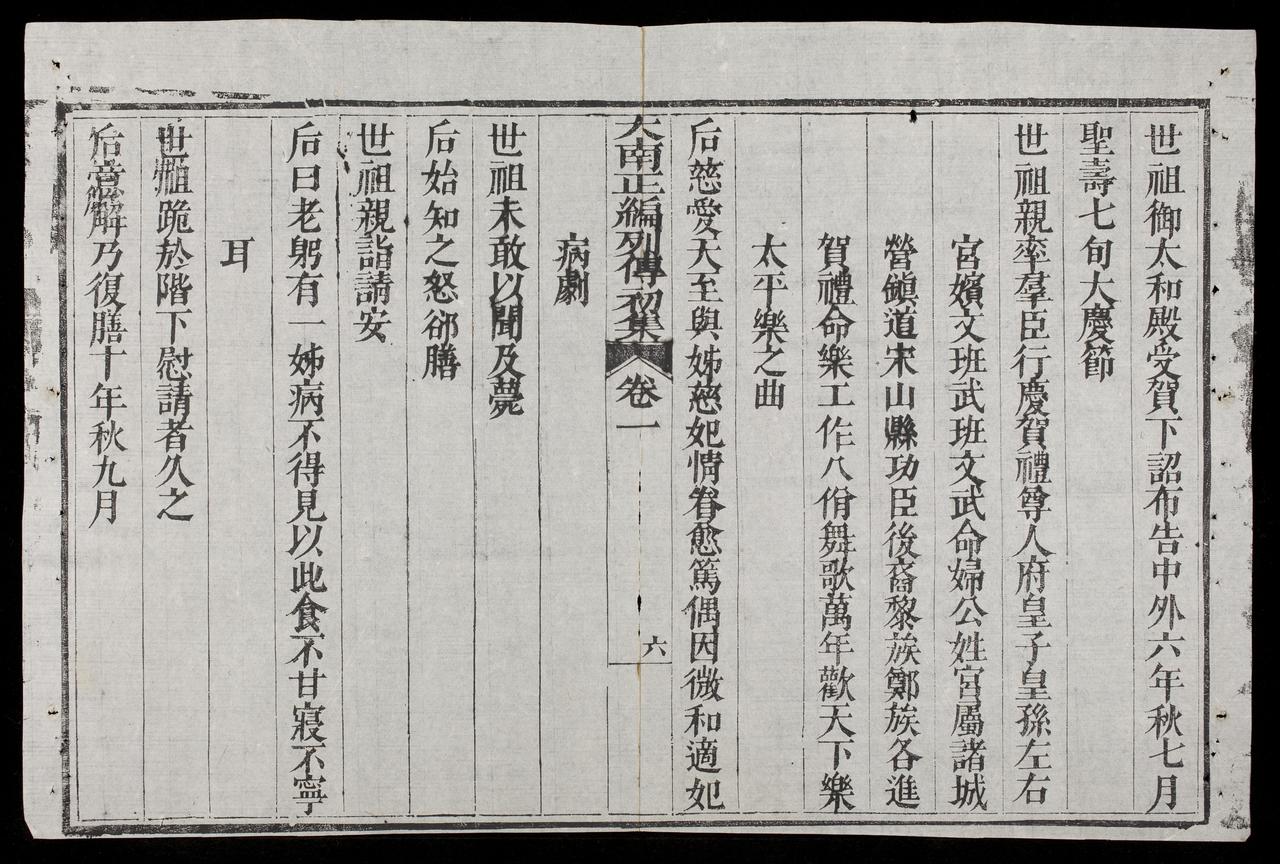 世祖御太和殿受賀下詔布告中外六年秋七月
聖壽七旬大慶節
世祖親率羣臣行慶賀禮尊人府皇子皇孫左右
宮嬪文班武班文武命婦公姓宮屬諸城
營鎮道宋山縣功臣後裔黎族鄭族各進
賀禮命樂工作八佾舞歌萬年歡天下樂
太平樂之曲
后慈愛天至與姊慈妃情眷愈篤偶因微和適妃
大南正編列傳初集 卷一 六
病劇
世祖未敢以聞及薨
后始知之怒郤膳
世祖親詣請安
后曰老躬有一姊病不得見以此食不甘寢不寧
耳
世祖跪於階下慰請者久之
后意解乃復膳十年秋九月